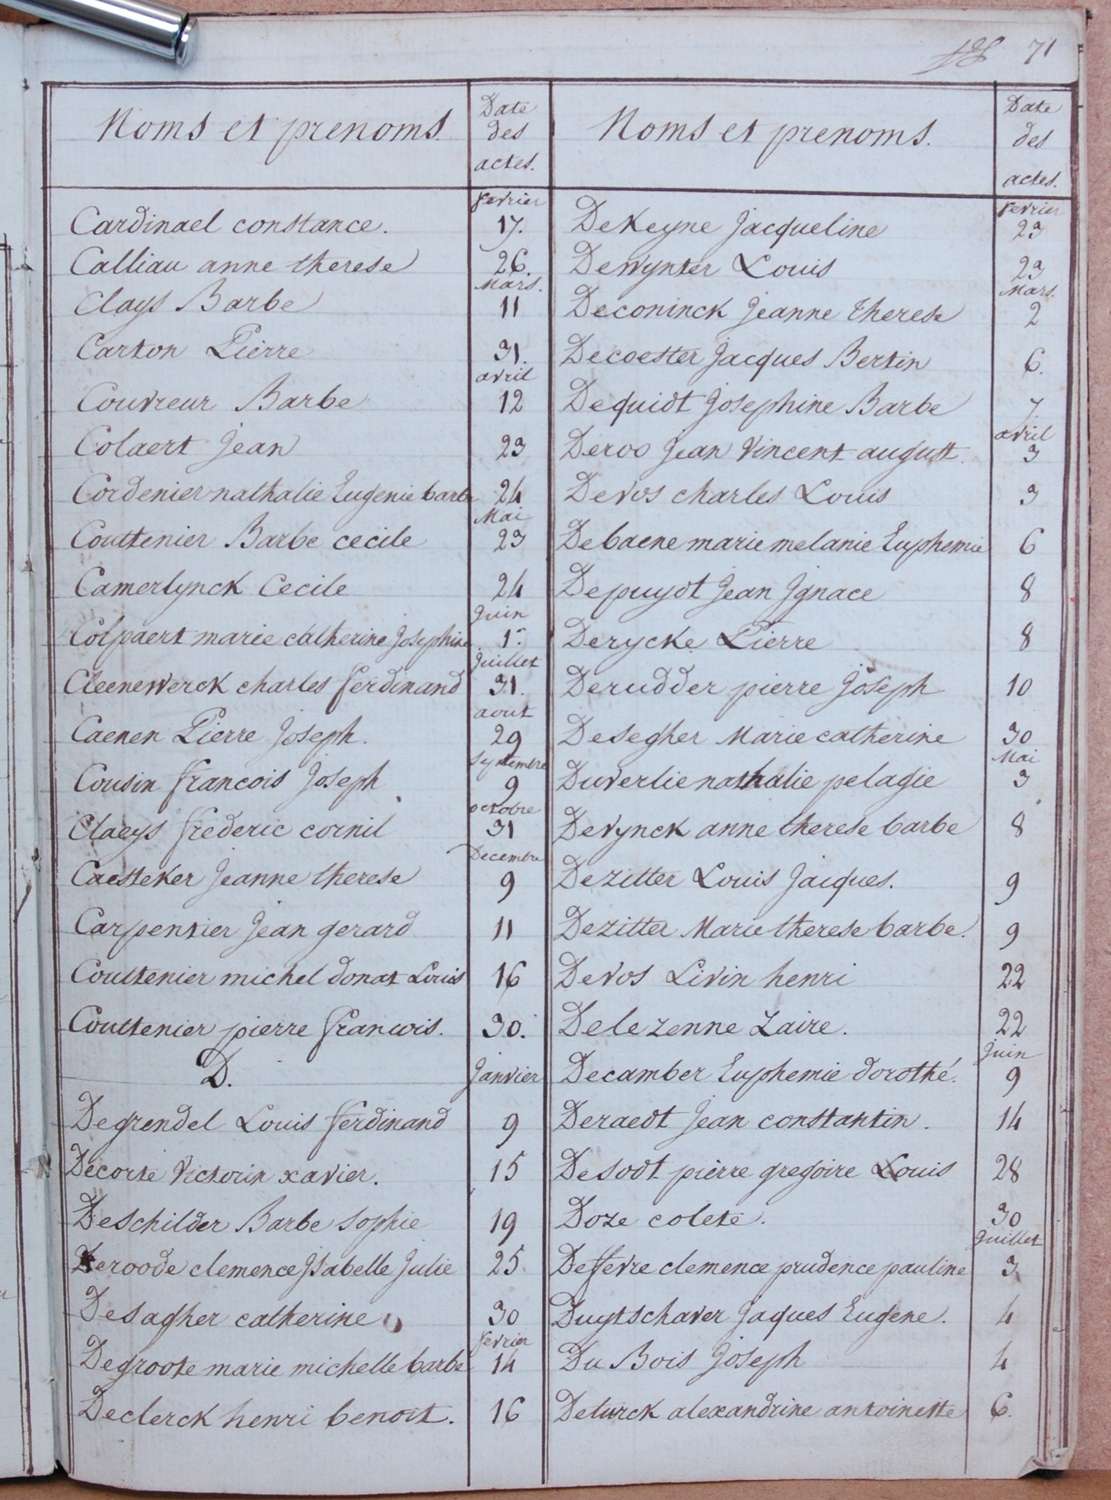 71
Noms et prenoms.
Date des actes.
Noms et prenoms.
Date des actes.
fevrier
Cardinael constance. 17.
Calliau anne therese 26.
Mars.
Clays Barbe 11
Carton Pierre 31.
avril
Couvreur Barbe 12
Colaert Jean 23
Cordenier nathalie Eugenie barbe 24
Mai
Couttenier Barbe cecile 23
Camerlynck Cecile 24
Juin
Colpaert marie catherine Josephine 1.
Juillet
Cleenewerck charles ferdinand 31.
aout
Caenen Pierre Joseph. 29
Septembre
Cousin francois Joseph 9
octobre
Claeys frederic cornil 31
Decembre
Caesteker Jeanne therese 9
Carpentier Jean gerard 11
Couttenier michel donat Louis 16
Couttenier pierre francois. 30.
D. Janvier
Degrendel Louis ferdinand 9
Decorte Victorin xavier. 15
Deschilder Barbe Sophie 19
Deroode clemence Isabelle Julie 25
Desagher catherine 30
fevrier
Degroote marie michelle barbe 14
Declerck henri benoit. 16
fevrier
DeKeyne Jacqueline 23
Dewynter Louis 23
Mars.
Deconinck Jeanne therese 2
Decoester Jacques Bertin 6.
Dequidt Josephine Barbe 7
avril
Deroo Jean Vincent august. 3
Devos charles Louis 3
Debaene marie melanie Euphemie 6
Depuydt Jean Ignace 8
Derycke Pierre 8
Derudder pierre Joseph 10
Desegher Marie catherine 30
Mai
Duverlie nathalie pelagie 3
Devynck anne therese barbe 8
Dezitter Louis Jacques. 9
Dezitter Marie therese barbe. 9
Devos Livin henri 22
Delezenne Zaire. 22
Juin
Decamber Euphemie dorothé. 9
Deraedt Jean constantin. 14
Desodt pierre gregoire Louis 28
Doze colete. 30
Juillet
Defevre clemence prudence pauline 3
Duytschaver Jaques Eugene. 4
Du Bois Joseph 4
Deturck alexandrine antoinette 6.